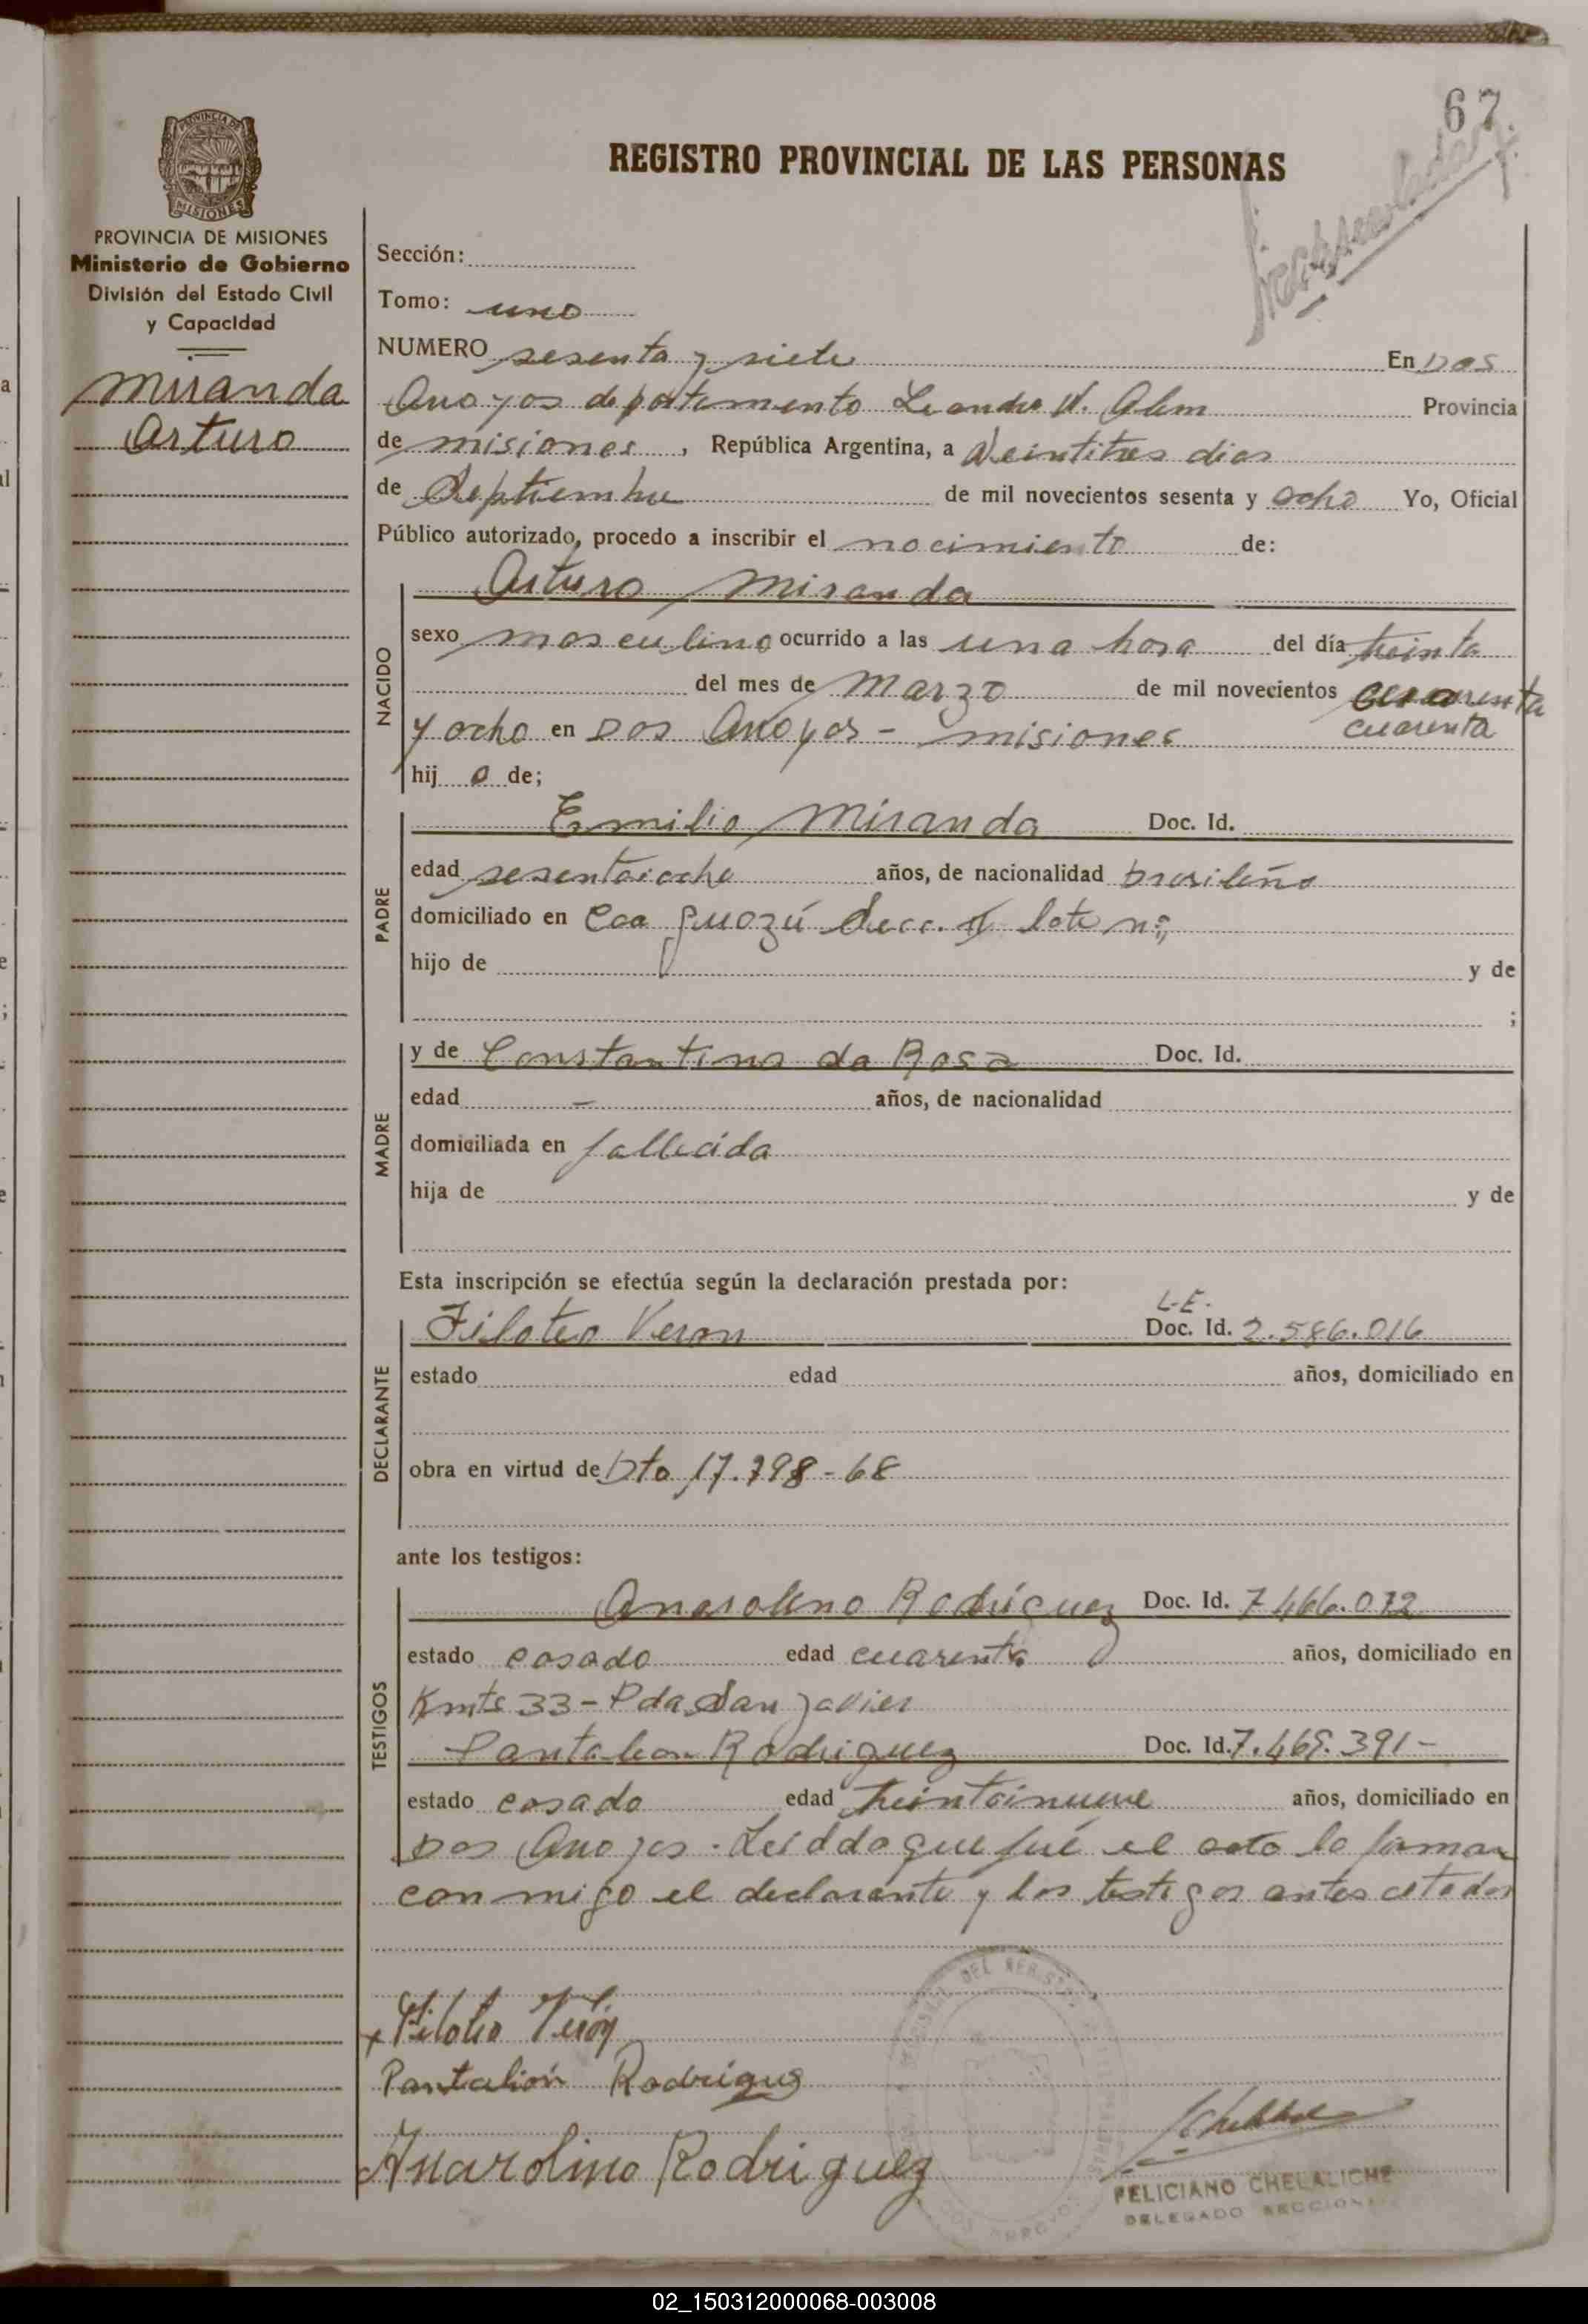 67
REGISTRO PROVINCIAL DE LAS PERSONAS
PROVINCIA DE
MISIONES
PROVINCIA DE MISIONES
Ministerio de Gobierno
División del Estado Civil
y Capacidad
Miranda
Arturo
Sección:
Tomo: uno
NUMERO sesenta y siete En Dos
Arroyos departamento Leandro N. Alem Provincia
de misiones, República Argentina, a Veintitres dias
de Septiembre de mil novecientos sesenta y ocho Yo, Oficial
Público autorizado, procedo a inscribir el nacimiento de:
NACIDO
Arturo Miranda
sexo masculino ocurrido a las una hora del día treinta
del mes de Marzo de mil novecientos cuarenta
cuarenta
y ocho en Dos Arroyos - misiones
hijo de;
PADRE
Emilio Miranda Doc. Id.
edad sesentaiocho años, de nacionalidad brasileño
domiciliado en Caa guazú Secc. lote n:;
hijo de y de
;
MADRE
y de Constantina da Rosa Doc. Id.
edad - años, de nacionalidad
domiciliada en fallecida
hija de y de
Esta inscripción se efectúa según la declaración prestada por:
L-E.
DECLARANTE
Filoteo Veron Doc. Id. 2.586.016
estado edad años, domiciliado en
obra en virtud de Dto 17.798-68
ante los testigos:
TESTIGOS
Anarolino Rodríguez Doc. Id. 7.466.072
estado casado edad cuarenta años, domiciliado en
Kmts 33 - Pda San Javier
Pantaleon Rodriguez Doc. Id. 7.469.391-
estado casado edad treintainueve años, domiciliado en
Dos Arroyos. Leidda que fué el acta la firman
con migo el declarante y los testigos antes citados
Filoteo Verón
Pantalión Rodrigues
Anarolino Rodriguez
FELICIANO CHELALICHE
DELEGADO SECCIONAL
02_150312000068-003008